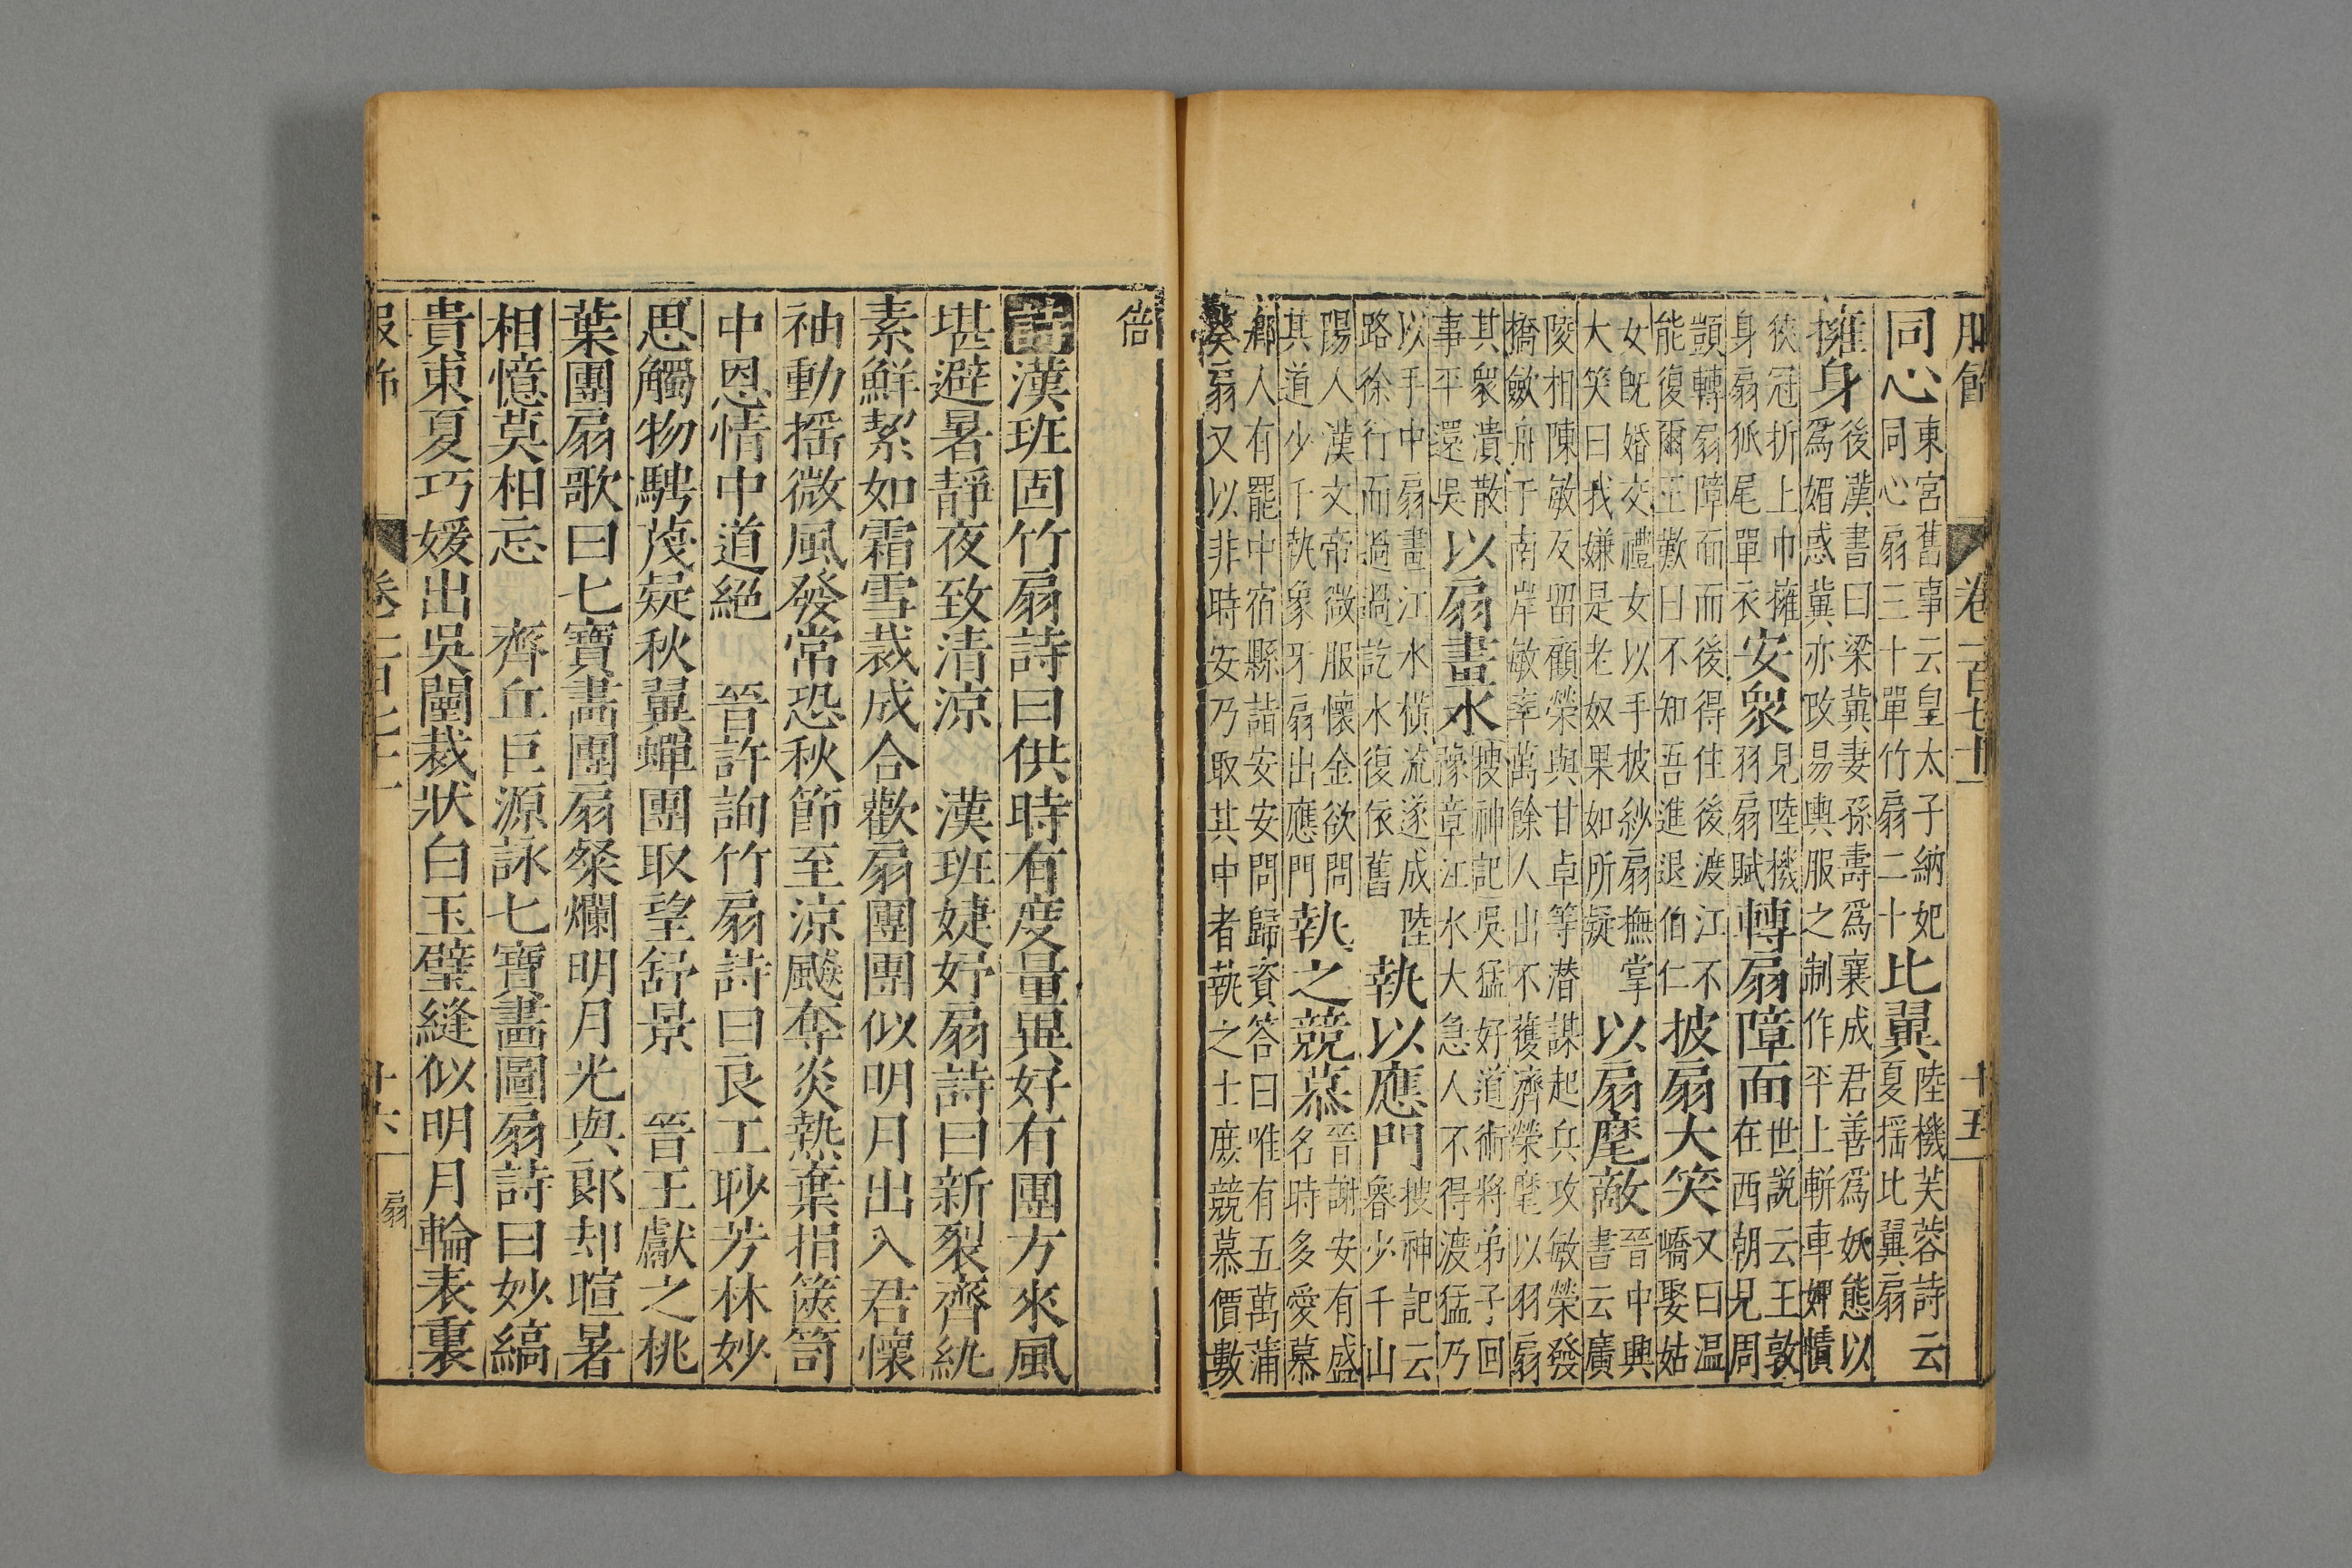 服飾 卷一百七十一 十五
同心 東宮舊事云皇太子納妃同心扇三十單竹扇二十 比翼 陸機芙蓉詩云夏揺比翼扇
擁身 後漢書曰梁冀妻孫壽爲襄成君善爲妖態以爲媚惑冀亦改易輿服之制作平上軿車婢幘
狹冠折上巾擁身扇狐尾單衣 安衆 見陸機羽扇賦 轉扇障面 世説云王敦在西朝見周
顗轉扇障面而後得住後渡江不能復爾王歎曰不知吾進退伯仁 披扇大笑 又曰温嶠娶姑
女旣婚交禮女以手披紗扇撫掌大笑曰我嫌是老奴果如所疑 以扇麾敵 晉中興書云廣
陵相陳敏反畱顧榮與甘卓等潜謀起兵攻敏榮發橋斂舟于南岸敏率萬餘人出不獲濟榮麾以羽扇
其衆潰散事平還吳 以扇畫水 搜神記吳猛好道術將弟子回豫章江水大急人不得渡猛乃
以手中扇畫江水橫流遂成陸路徐行而過過訖水復依舊 執以應門 搜神記云睿少千山
陽人漢文帝微服懷金欲問其道少千執象牙扇出應門 執之競慕 晉謝安有盛名時多愛慕
鄉人有罷中宿縣詣安安問歸資答曰唯有五萬蒲葵扇又以非時安乃取其中者執之士庶競慕價數
倍
詩漢班固竹扇詩曰供時有度量異好有團方來風
堪避暑靜夜致清涼 漢班婕妤扇詩曰新裂齊紈
素鮮絜如霜雪裁成合歡扇團團似明月出入君懷
袖動揺微風發常恐秋節至涼飈奪炎熱棄捐篋笥
中恩情中道絕 晉許詢竹扇詩曰良工眇芳林妙
思觸物騁蔑疑秋翼蟬團取望舒景 晉王獻之桃
葉團扇歌曰七寶畵團扇粲爛明月光與郎却暄暑
相憶莫相忘 齊丘巨源詠七寶畵圖扇詩曰妙縞
貴東夏巧媛出吳闉裁狀白玉璧縫似明月輪表裏
服飾 卷一百七十一 十六 扇